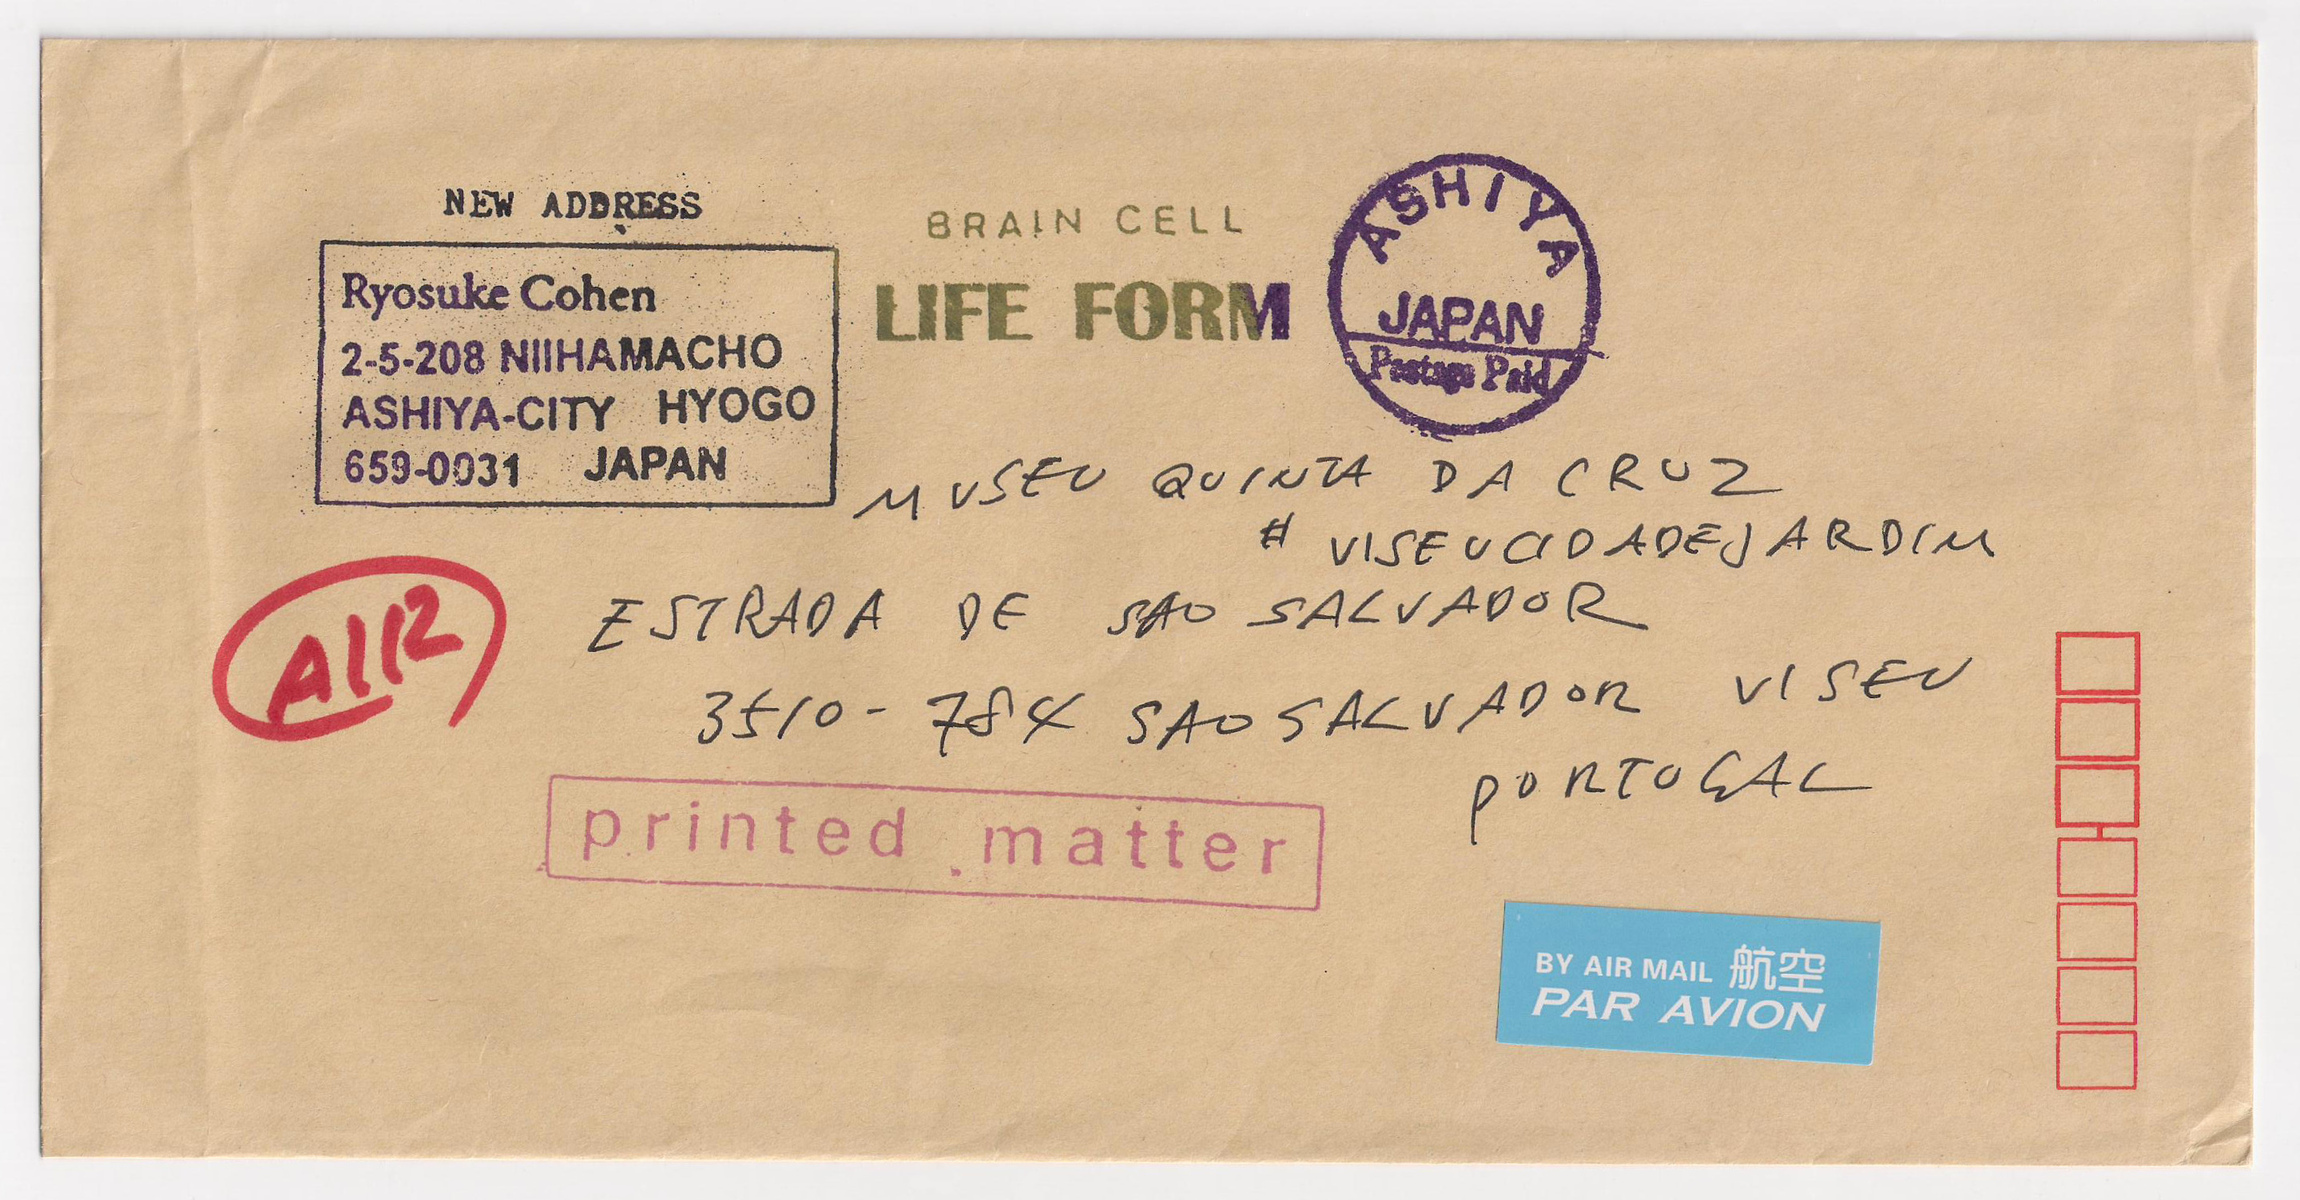 NEW ADDRESS
Ryosuke Cohen
2-5-208 NIIHAMACHO
ASHIYA-CITY HYOGO
659-0031 JAPAN
BRAIN CELL
LIFE FORM
ASHIYA
JAPAN
Postage Paid
MUSEU QUINTA DA CRUZ
# VISEUCIDADEJARDIM
ESTRADA DE SAO SALVADOR
3510-784 SAO SALVADOR VISEU
PORTUGAL
AIR
printed matter
BY AIR MAIL 航空
PAR AVION